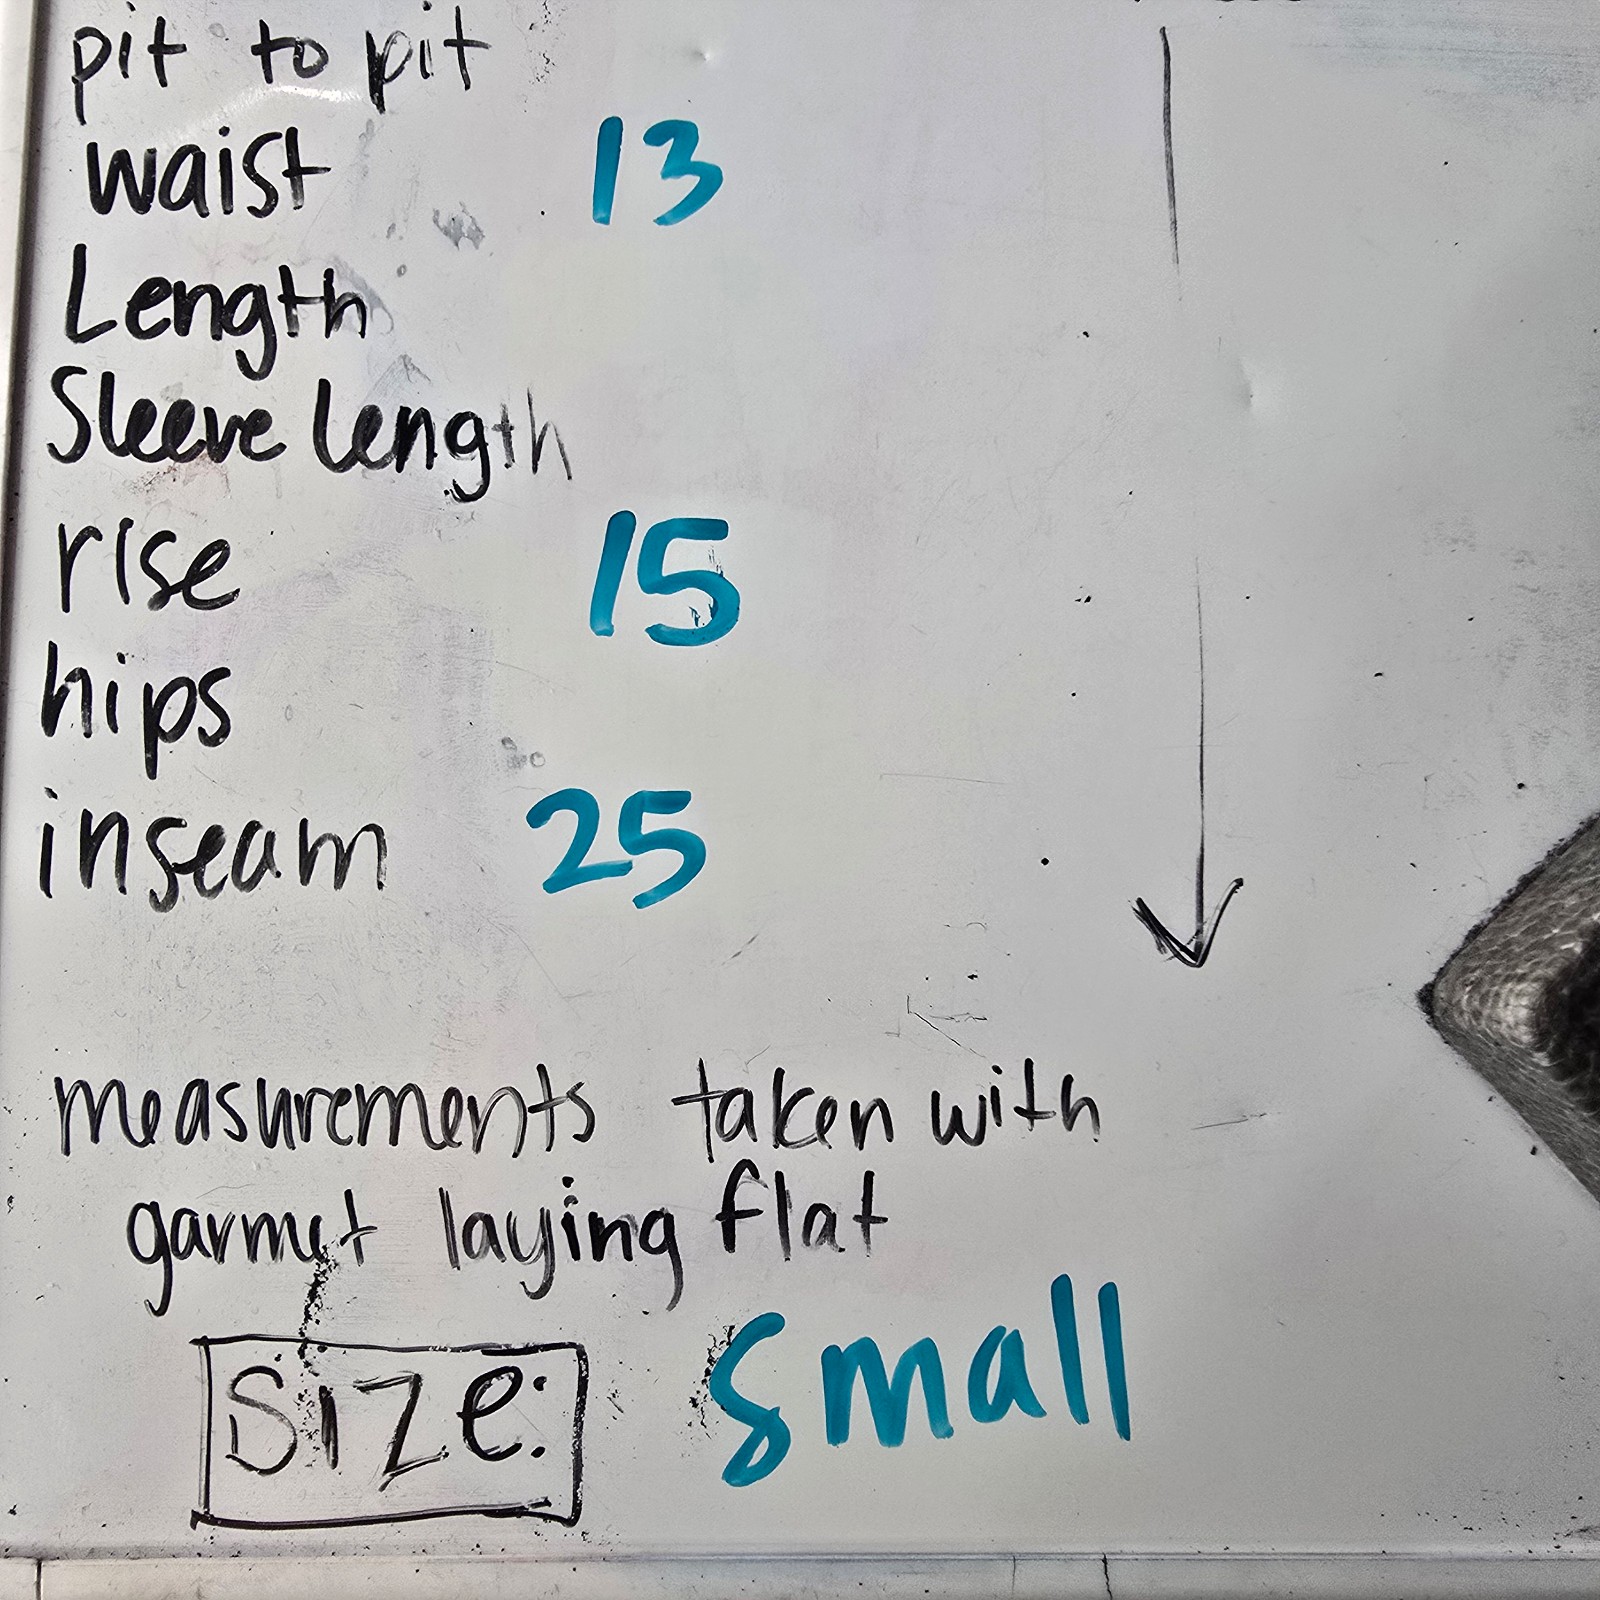 pit to pit
waist 13
Length
Sleeve length
rise 15
hips
inseam 25
measurements taken with
garmet laying flat
Size: Small